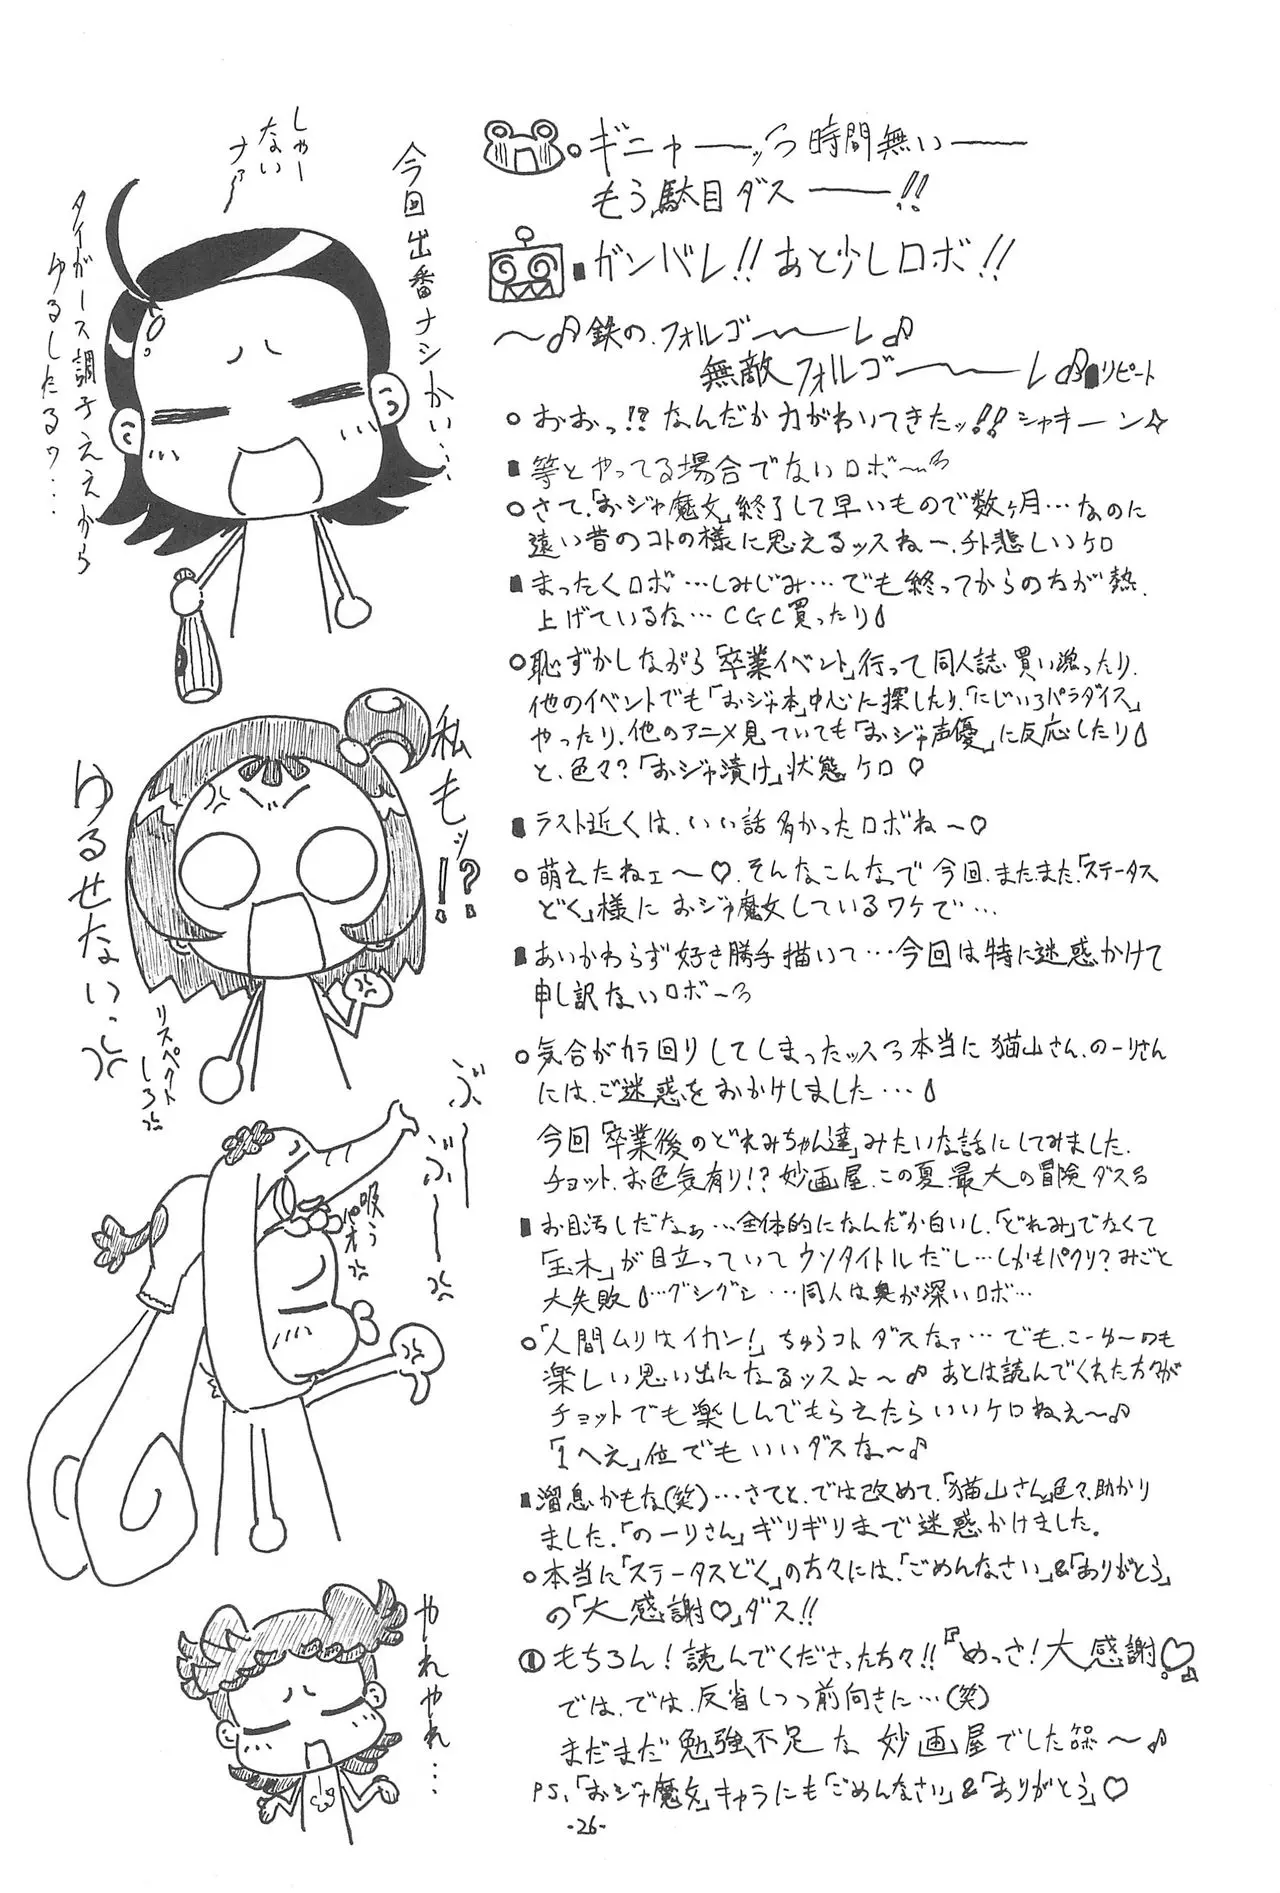 ギニャーーッ 時間無いーー
もう駄目ダスーー!!
ガンバレ!! あと少しロボ!!
〜♪鉄の、フォルゴーーレ♪
無敵フォルゴーーレ♪ リピート
おおっ!? なんだか力がわいてきたッ!! シャキーーン☆
等とやってる場合でないロボ〜
さて、「おジャ魔女」終了して早いもので数ヶ月…なのに
遠い昔のコトの様に思えるッスねー、チト悲しいケロ
まったくロボ…しみじみ…でも終ってからの方が熱
上げているな…CGC買ったり
恥ずかしながら「卒業イベント」行って同人誌買い漁ったり、
他のイベントでも「おジャ本」中心に探したり、「にじいろパラダイス」
やったり、他のアニメ見ていても「おジャ声優」に反応したり
と、色々?「おジャ漬け」状態ケロ♡
ラスト近くは、いい話多かったロボね〜♡
萌えたねェ〜♡、そんなこんなで今回、またまた「ステータス
どく」様におジャ魔女しているワケで…
あいかわらず好き勝手描いて…今回は特に迷惑かけて
申し訳ないロボ〜
気合がカラ回りしてしまったッス 本当に猫山さん、のーりさん
には、ご迷惑をおかけしました…
今回「卒業後のどれみちゃん達」みたいな話にしてみました、
チョット、お色気有り!? 妙画屋、この夏、最大の冒険ダス
お目汚しだなぁ…全体的になんだか白いし、「どれみ」でなくて
「玉木」が目立っていてウソタイトルだし…しかもパクリ? みごと
大失敗…グシグシ…同人は奥が深いロボ…
「人間ムリはイカン!」ちゅうコトダスなァ…でも、こーゆーのも
楽しい思い出になるッスよ〜♪ あとは読んでくれた方々が
チョットでも楽しんでもらえたらいいケロねぇ〜♪
「1へえ」位でもいいダスな〜♪
溜息かもな(笑)…さてと、では改めて、「猫山さん」色々、助かり
ました、「のーりさん」ギリギリまで迷惑かけました。
本当に「ステータスどく」の方々には、「ごめんなさい」&「ありがとう」
の「大感謝♡」ダス!!
もちろん! 読んでくださった方々!!『めっさ! 大感謝♡』
では、では、反省しつつ前向きに…(笑)
まだまだ勉強不足な 妙画屋でした 〜♪
PS、「おジャ魔女」キャラにも「ごめんなさい」&「ありがとう」♡
-26-
今回出番ナシかい…
しゃー
ない
ナァ〜
タイガース調子ええから
ゆるしたるワ…
私もッ!?
ゆるせない…
リスペクト
しろ
ぶーー
ぶーー
吸う
パオ
やれやれ…